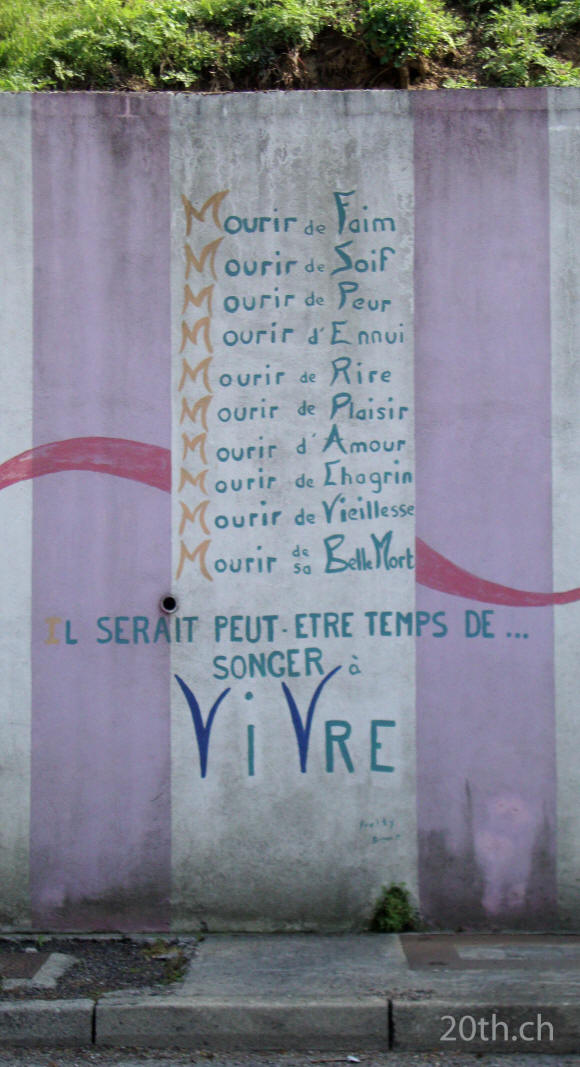 Mourir de Faim
Mourir de Soif
Mourir de Peur
Mourir d'Ennui
Mourir de Rire
Mourir de Plaisir
Mourir d'Amour
Mourir de Chagrin
Mourir de Vieillesse
Mourir de sa Belle Mort
IL SERAIT PEUT-ETRE TEMPS DE ...
SONGER à
ViVRE
20th.ch